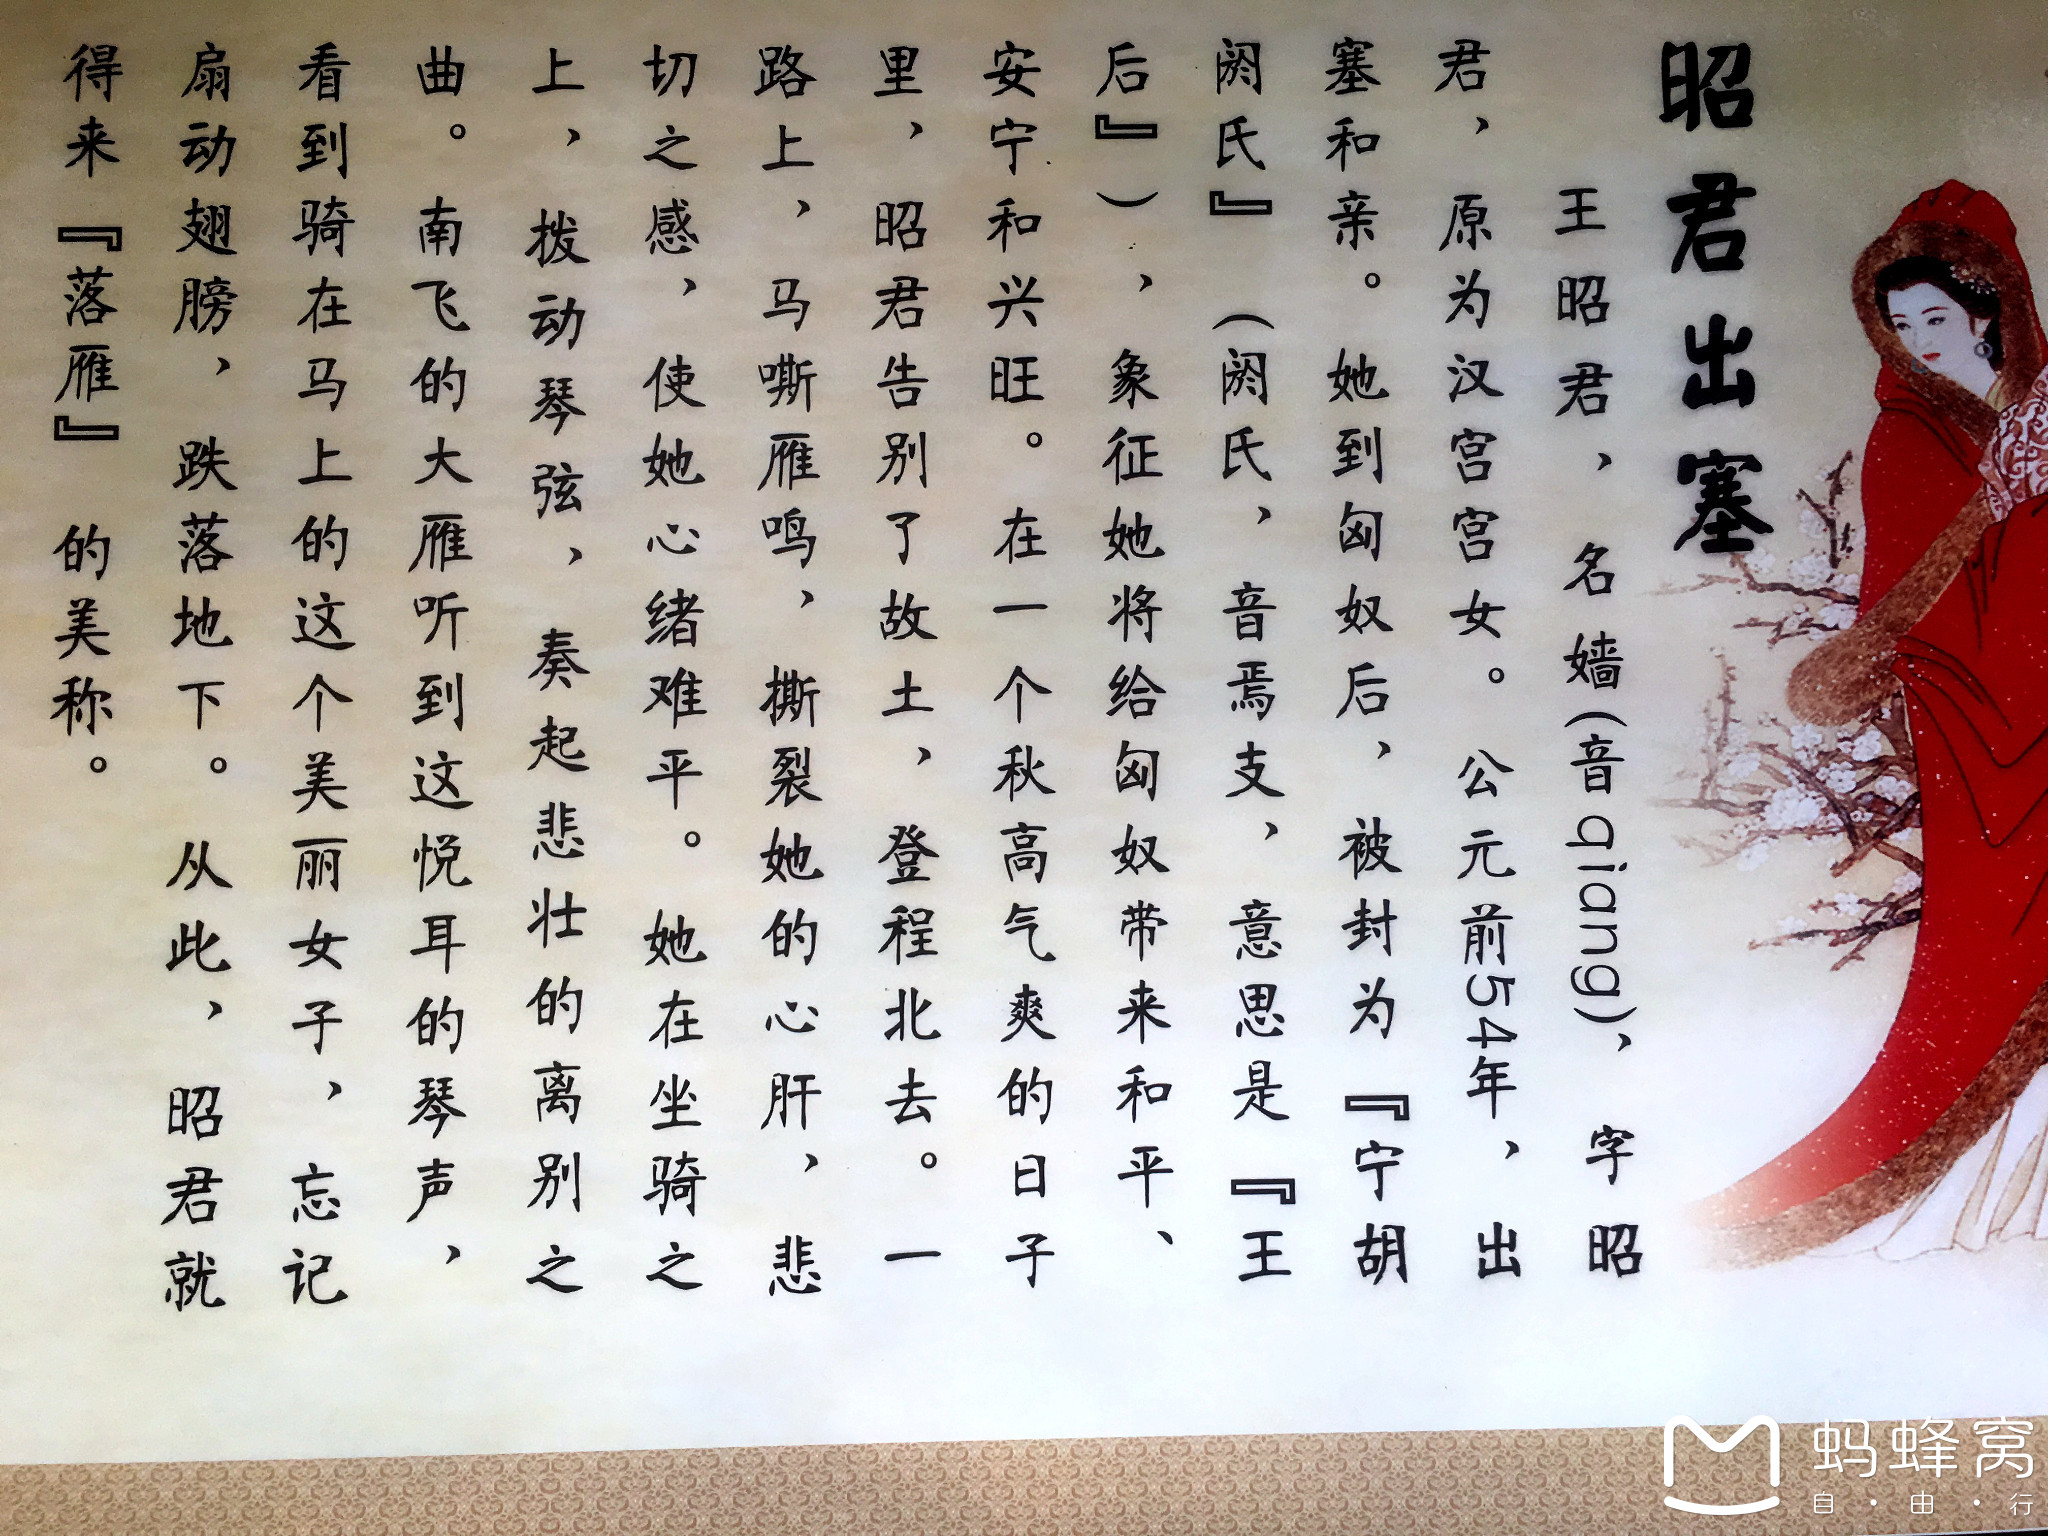 昭君出塞
王昭君,名嫱(音qiang),字昭
君,原为汉宫宫女。公元前54年,出
塞和亲。她到匈奴后,被封为『宁胡
阏氏』(阏氏,音焉支,意思是『王
后』),象征她将给匈奴带来和平、
安宁和兴旺。在一个秋高气爽的日子
里,昭君告别了故土,登程北去。一
路上,马嘶雁鸣,撕裂她的心肝,悲
切之感,使她心绪难平。她在坐骑之
上,拨动琴弦,奏起悲壮的离别之
曲。南飞的大雁听到这悦耳的琴声,
看到骑在马上的这个美丽女子,忘记
扇动翅膀,跌落地下。从此,昭君就
得来『落雁』的美称。
蚂蜂窝
自·由·行